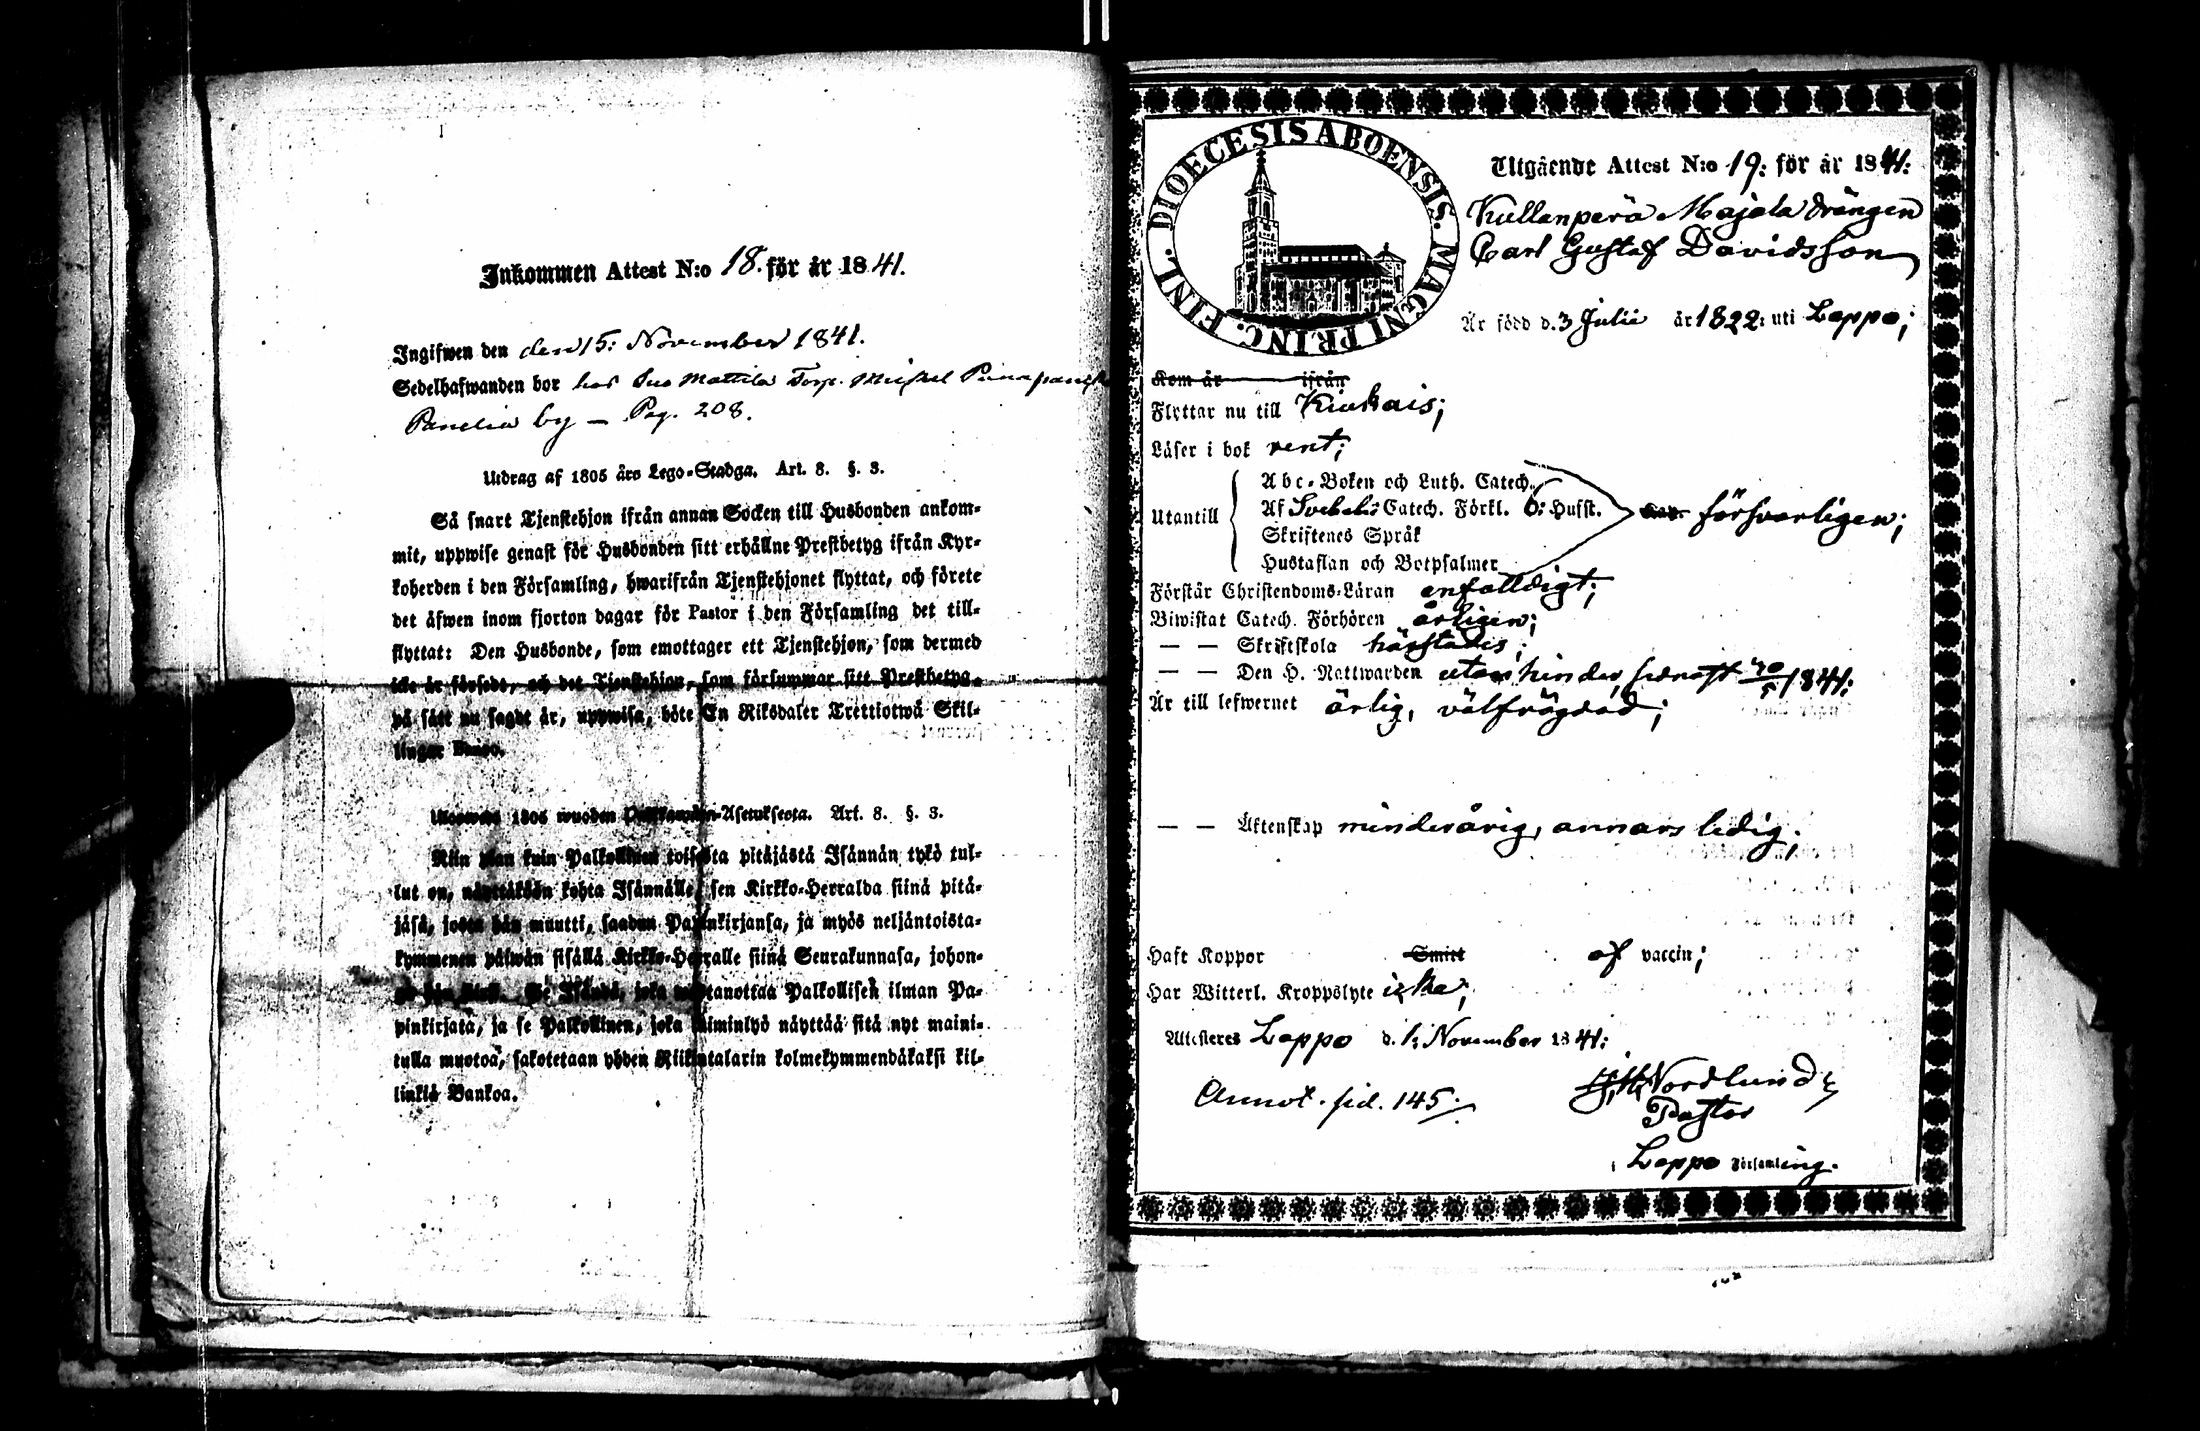 Inkommen Attest N:o 18. för år 1841.
Ingifwen den den 15: November 1841.
Sedelhafwanden bor hos Mattila Torp. Michel
Panelia by — Pag. 208.
Utdrag af 1805 års Lego-Stadga. Art. 8. §. 3.
Så snart Tjenstehjon ifrån annan Socken till Husbonden ankom-
mit, uppwise genast för Husbonden sitt erhållne Prestbetyg ifrån Kyr-
koherden i den Församling, hwarifrån Tjenstehjonet flyttat, och förete
det äfwen inom fjorton dagar för Pastor i den Församling det till-
flyttat: Den Husbonde, som emottager ett Tjenstehjon, som dermed
icke är försedt, och det Tjenstehjon, som försummar sitt Prestbetyg,
på sätt nu sagdt är, uppwisa, böte En Riksdaler Trettiotwå Skil-
lingar Banco.
Ulosweto 1805 wuoden Palkkawäen-Asetuksesta. Art. 8. §. 3.
Niin pian kuin Palkollinen toisesta pitäjästä Isännän tykö tul-
lut on, näyttäkään kohta Isännälle, sen Kirkko-Herralda siinä pitä-
jäsä, josta hän muutti, saadun Papinkirjansa, ja myös neljäntoista-
kymmenen päiwän sisällä Kirkko-Herralle siinä Seurakunnasa, johon-
ga hän tuli. Se Isändä, joka wastanottaa Palkollisen ilman Pa-
pinkirjata, ja se Palkollinen, joka laiminlyö näyttää sitä nyt maini-
tulla muotoa, sakotetaan yhden Riikintalarin kolmekymmendäkaksi kil-
linkiä Bankoa.
DIOECESIS ABOENSIS. MAGNI PRINC. FINL.
Utgående Attest N:o 19: för år 1841:
Kullanperä Majala drängen
Carl Gustaf Davidsson
Är född d. 3 Julii år 1822: uti Lappo;
Kom år ifrån
Flyttar nu till Kiukais;
Läser i bok rent;
Utantill
Abc-Boken och Luth. Catech.
Af Svebelii Catech. Förkl. 6: Hufst.
Skriftenes Språk
Hustaflan och Botpsalmer
försvarligen;
Förstår Christendoms-Läran enfalldigt;
Biwistat Catech. Förhören årligen;
— — Skriftskola härstädes;
— — Den H. Nattwarden utan hinder, sednast 1841:
Är till lefwernet ärlig, välfrägdad;
— — Äktenskap minderårig, annars ledig;
Haft Koppor Smitt af vaccin;
Har Witterl. Kroppslyte icke;
Attesteres Lappo d. 1: November 1841:
Annot. sid. 145.
Nordlund
Pastor
i Lappo Församling.